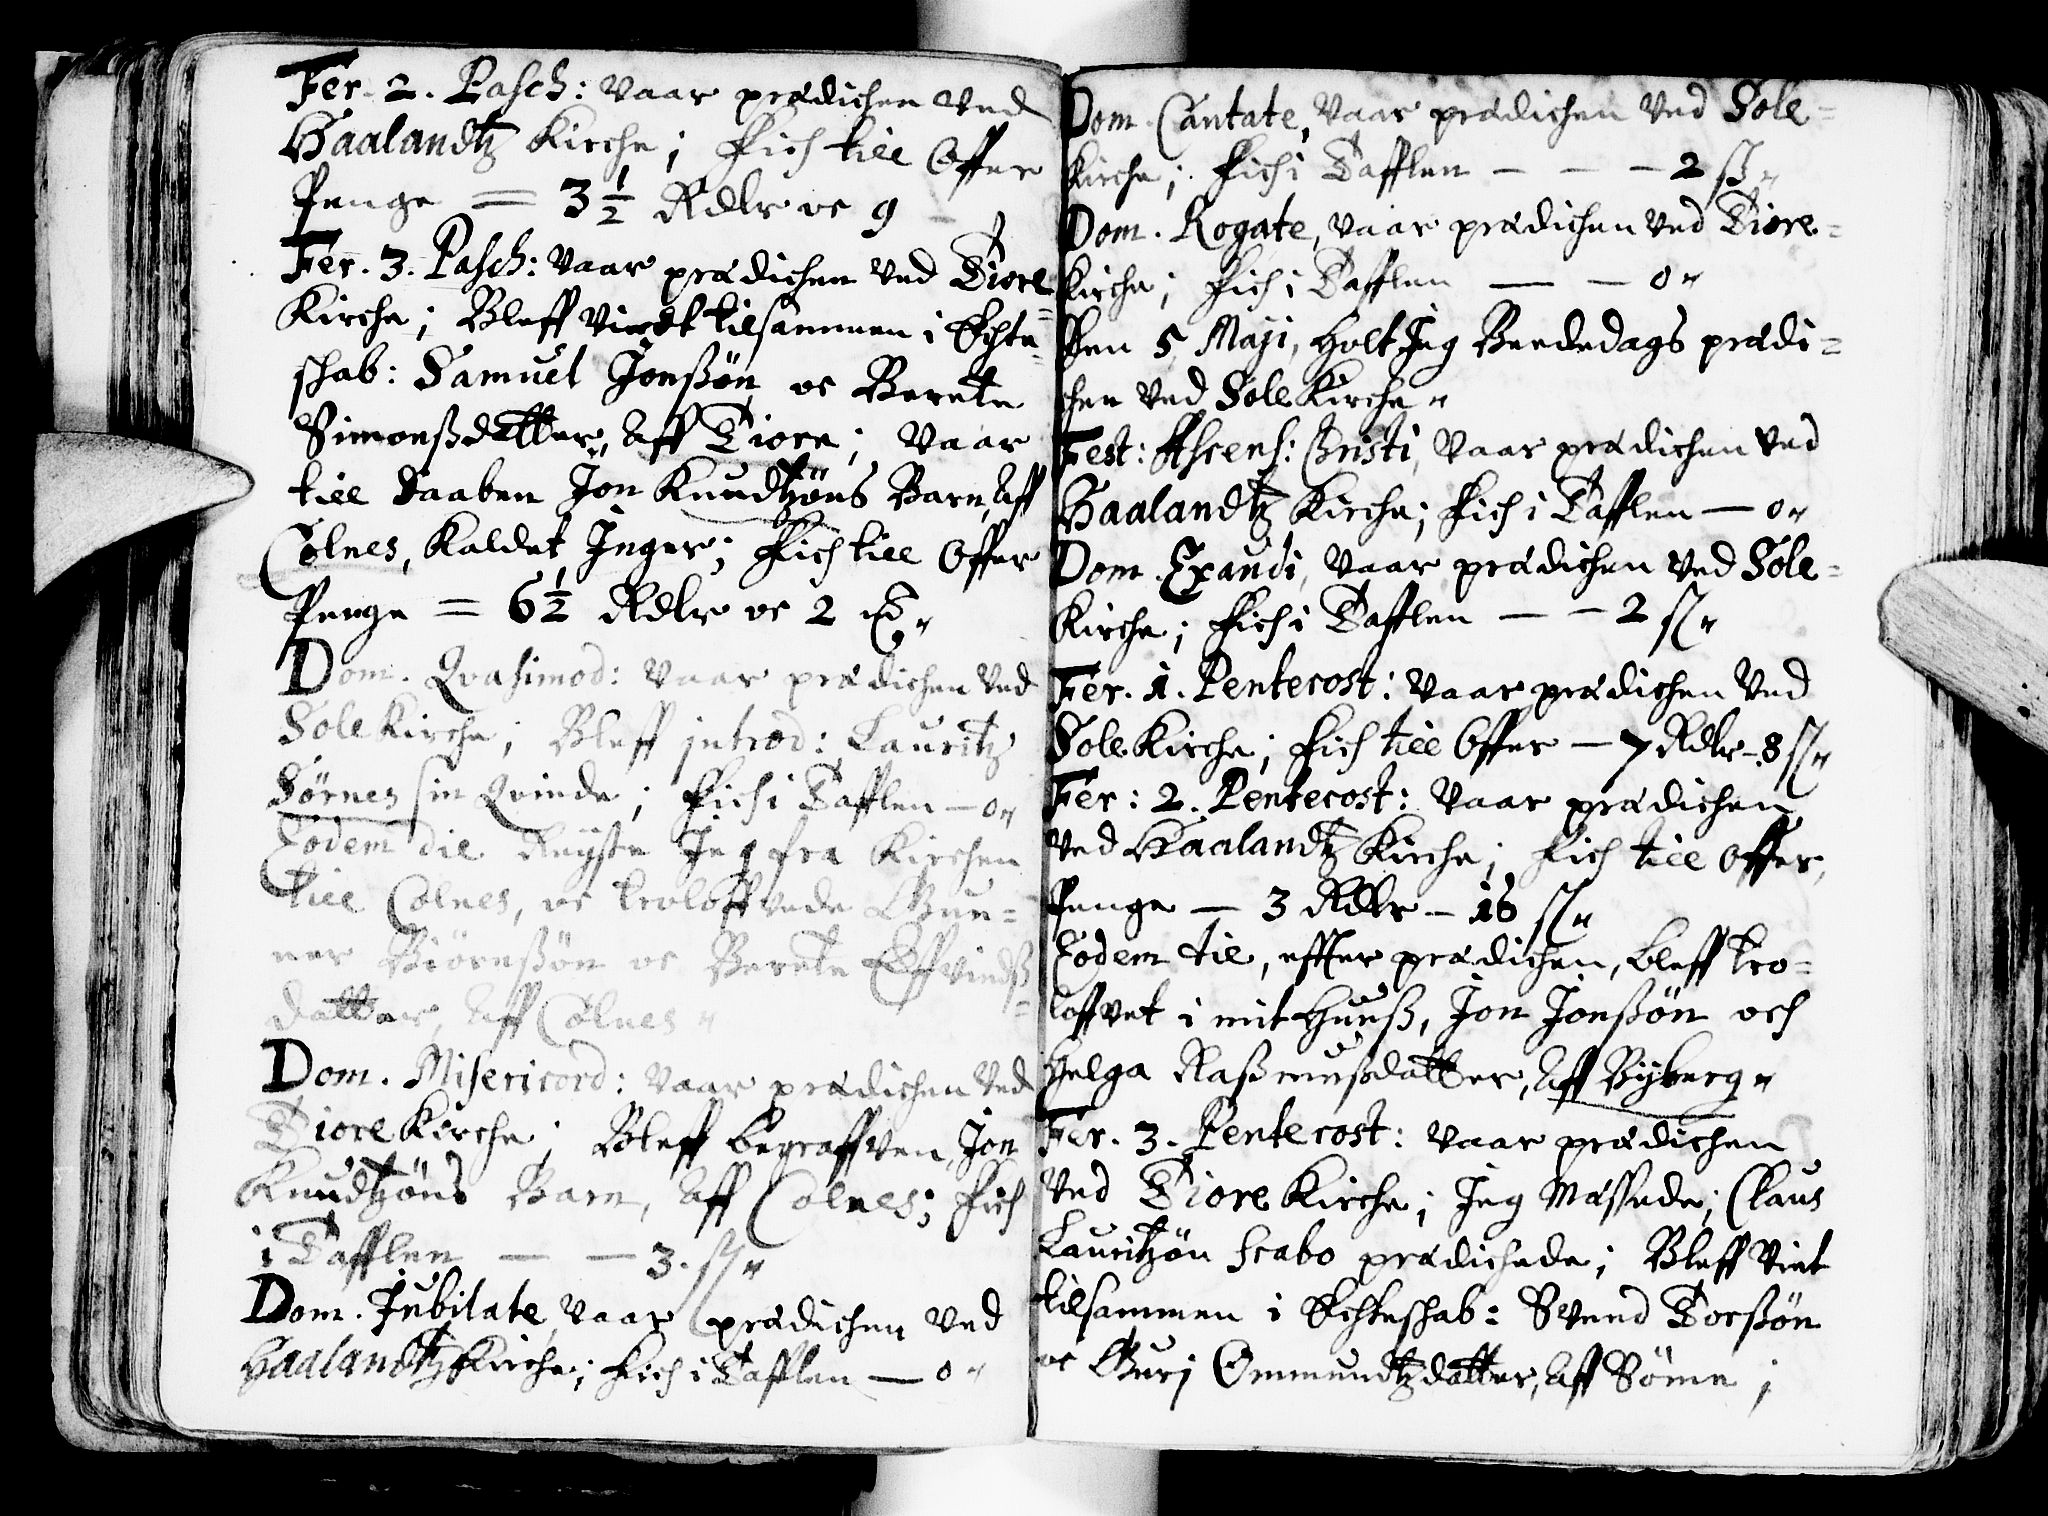 Fer. 2. Pasch: Vaar prædichen Ved
Haalandtz Kirche; Fich till Offer
Penge = 3½ Rdlr oc 9
Fer. 3. Pasch: Vaar prædichen Ved Tiore
Kirche; Bleff Viedt tilsammen i Echte-
schab: Samuel Jonßøn oc Berete
Simonßdatter, Aff Tiore; Vaar
till Daaben Jon Knudtzøns Barn, Aff
Colnes, Kaldet Inger; Fich till Offer
Penge = 6½ Rdlr oc 2
Dom. Qvasimod: Vaar prædichen Ved
Sole Kirche; Bleff introd: Lauritz
Sørnes sin Qvinde; Fich i Tafflen — 0"
Eodem die Reyste Jeg fra Kirchen
till Colnes, oc troloffvede Gun-
ner Biørnßøn oc Berete Effvindß-
datter, Aff Colnes"
Dom. Misericord: Vaar prædichen Ved
Tiore Kirche; Bleff begraffven, Jon
Knudtzøns Barn, Aff Colnes; Fich
i Tafflen — — 3. ß"
Dom. Jubilate, Vaar prædichen Ved
Haalandtz Kirche; Fich i Tafflen — 0"
Dom. Cantate, Vaar prædichen Ved Sole-
Kirche; Fich i Tafflen — — — 2 ß"
Dom. Rogate, Vaar prædichen Ved Tiore-
Kirche; Fich i Tafflen — — 0"
Den 5 Maji, Holt Jeg Beededags prædi-
chen Ved Sole Kirche"
Fest: Ascens: Christi, Vaar prædichen Ved
Haalandtz Kirche; Fich i Tafflen — 0"
Dom. Exaudi, Vaar prædichen Ved Sole-
Kirche; Fich i Tafflen — — 2 ß"
Fer. 1. Pentecost: Vaar prædichen Ved
Sole Kirche; Fich till Offer — 7 Rdlr - 8 ß"
Fer: 2. Pentecost: Vaar prædichen
Ved Haalandtz Kirche; Fich till Offer,
Penge — 3 Rdlr — 16 ß"
Eodem die, effter prædichen, bleff tro-
loffvet i mit Huuß, Jon Jonßøn och
Helga Raßmußdatter, Aff Byberg"
Fer. 3. Pentecost: Vaar prædichen
Ved Tiore Kirche; Jeg Messede; Claus
Lauritzøn Scabo prædichede; Bleff Viet
tilsammen i Echteschab: Svend Torßøn
oc Gurj Ommundtzdatter, Aff Søme;